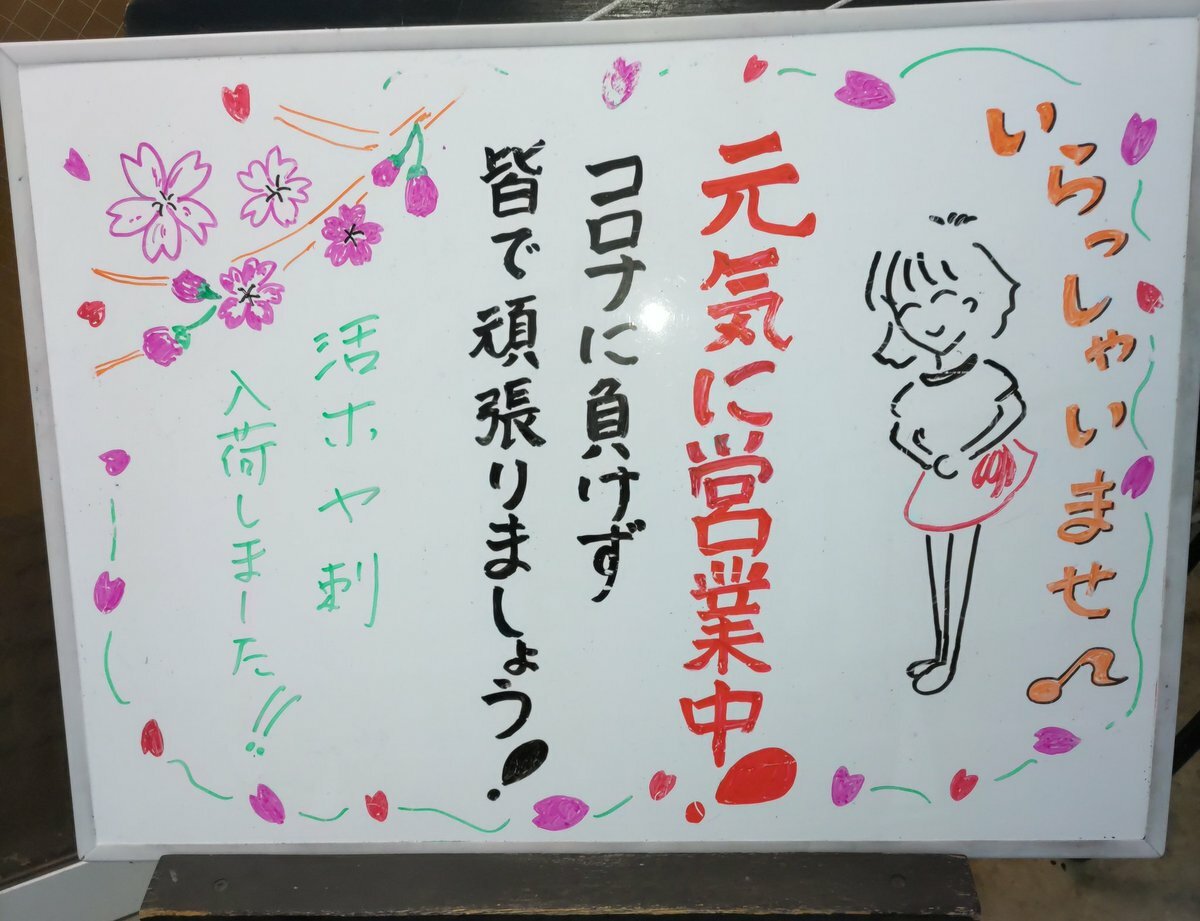 いらっしゃいませ♪
元気に営業中!
コロナに負けず
皆で頑張りましょう!
活ホヤ刺
入荷しました!!